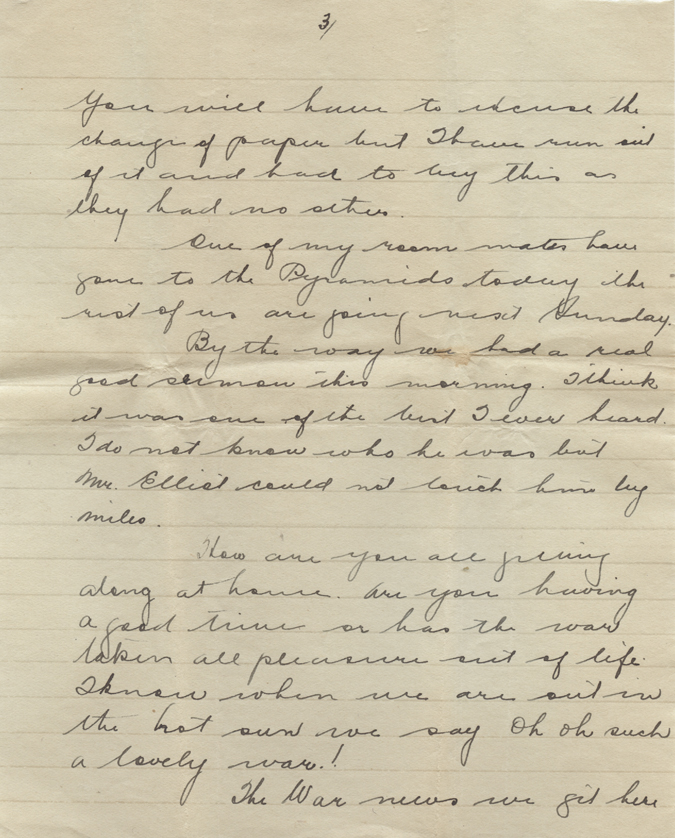 3/
You will have to excuse the
change of paper but I have run out
of it and had to buy this as
they had no other.
One of my room mates have
gone to the Pyramids today the
rest of us are going next Sunday.
By the way we had a real
good sermon this morning. I think
it was one of the best I ever heard.
I do not know who he was but
Mr. Elliot could not touch him by
miles.
How are you all getting
along at home. Are you having
a good time or has the war
taken all pleasure out of life.
I know when we are out in
the hot sun we say Oh oh such
a lovely war.!
The War news we get here